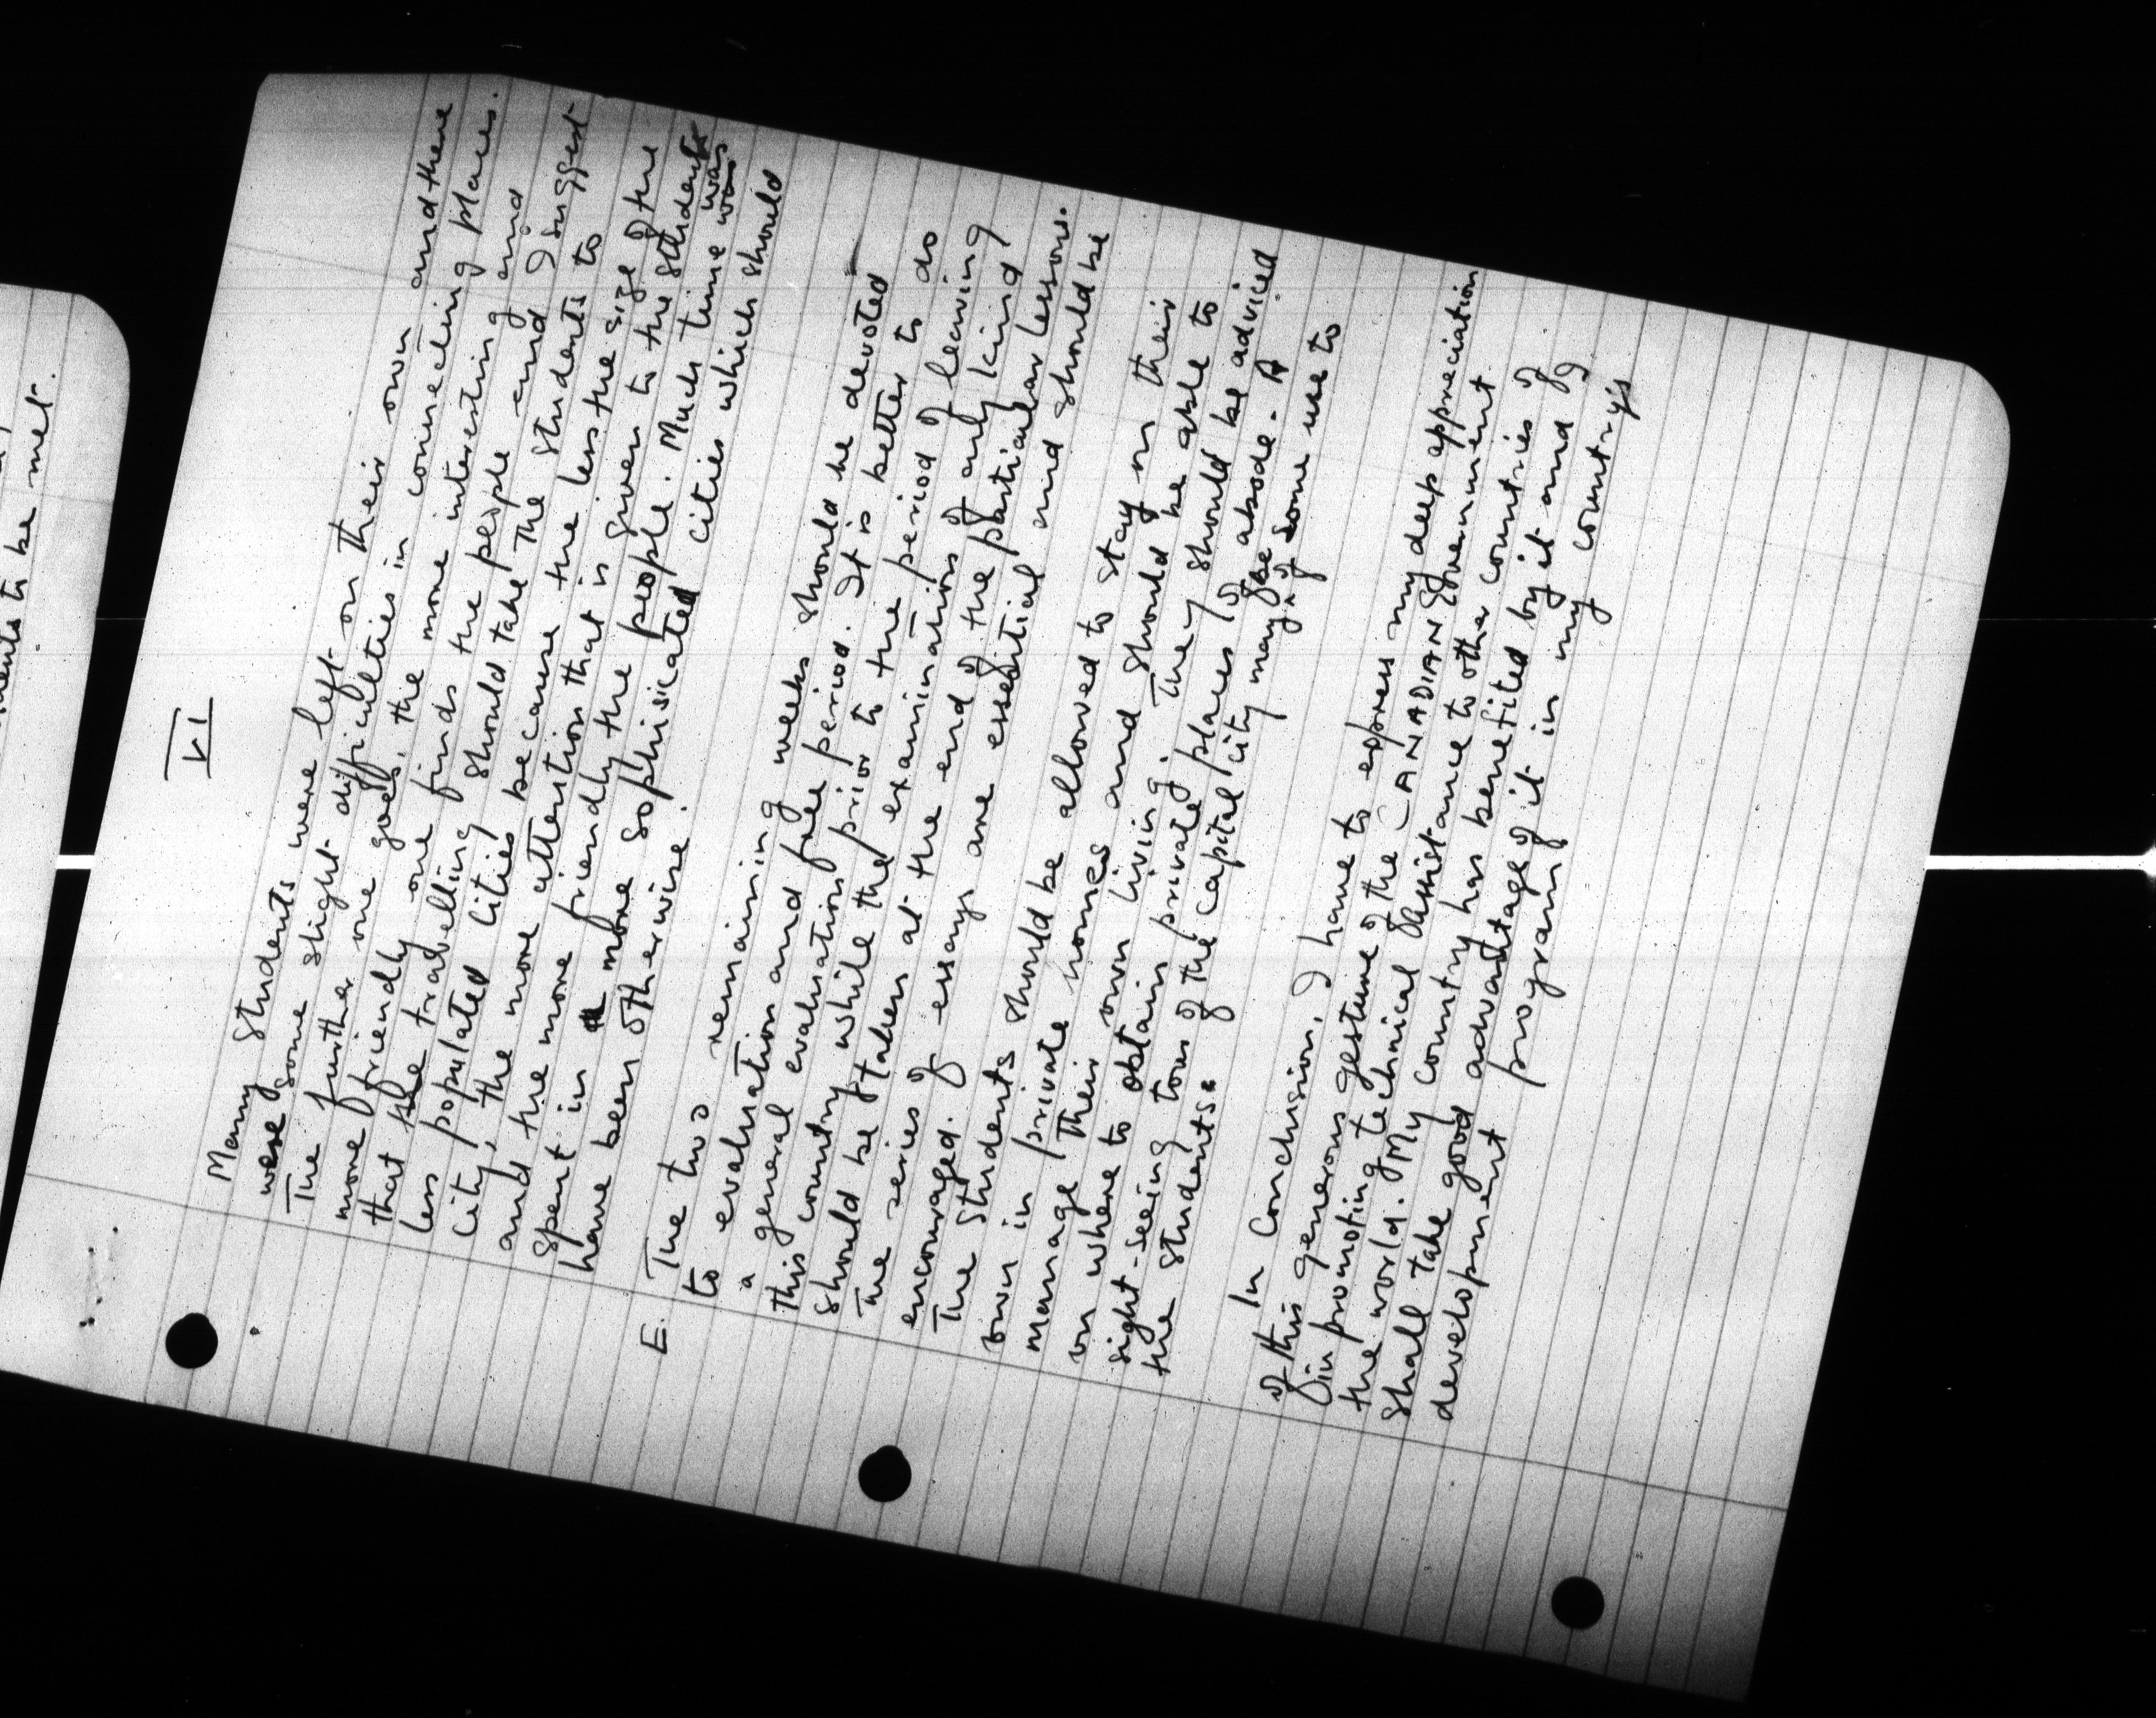 ments to be met.
VI
Many students were left on their own and there
were some slight difficulties in connecting places.
The further one goes, the more interesting and
more friendly one finds the people and I suggest
that the travelling should take the students to
less populated cities because the less the size of the
city, the more attention that is given to the students
and the more friendly the people. Much time was
spent in more sophisicated cities which should
have been otherwise.
E. The two remaining weeks should be devoted
to evaluation and free period. It is better to do
a general evaluation prior to the period of leaving
this country while the examinations of any kind
should be taken at the end of the particular lesson.
The series of essays are essential and should be
encouraged.
The students should be allowed to stay on their
own in private homes and should be able to
manage their own living. They should be adviced
on where to obtain private places of abode. A
sight-seeing tour of the capital city may be of some use to
the students.
In conclusion, I have to express my deep appreciation
of this generous gesture of the CANADIAN Government
in promoting technical assistance to other countries of
the world. My country has benefited by it and I
shall take good advantage of it in my country's
development program.